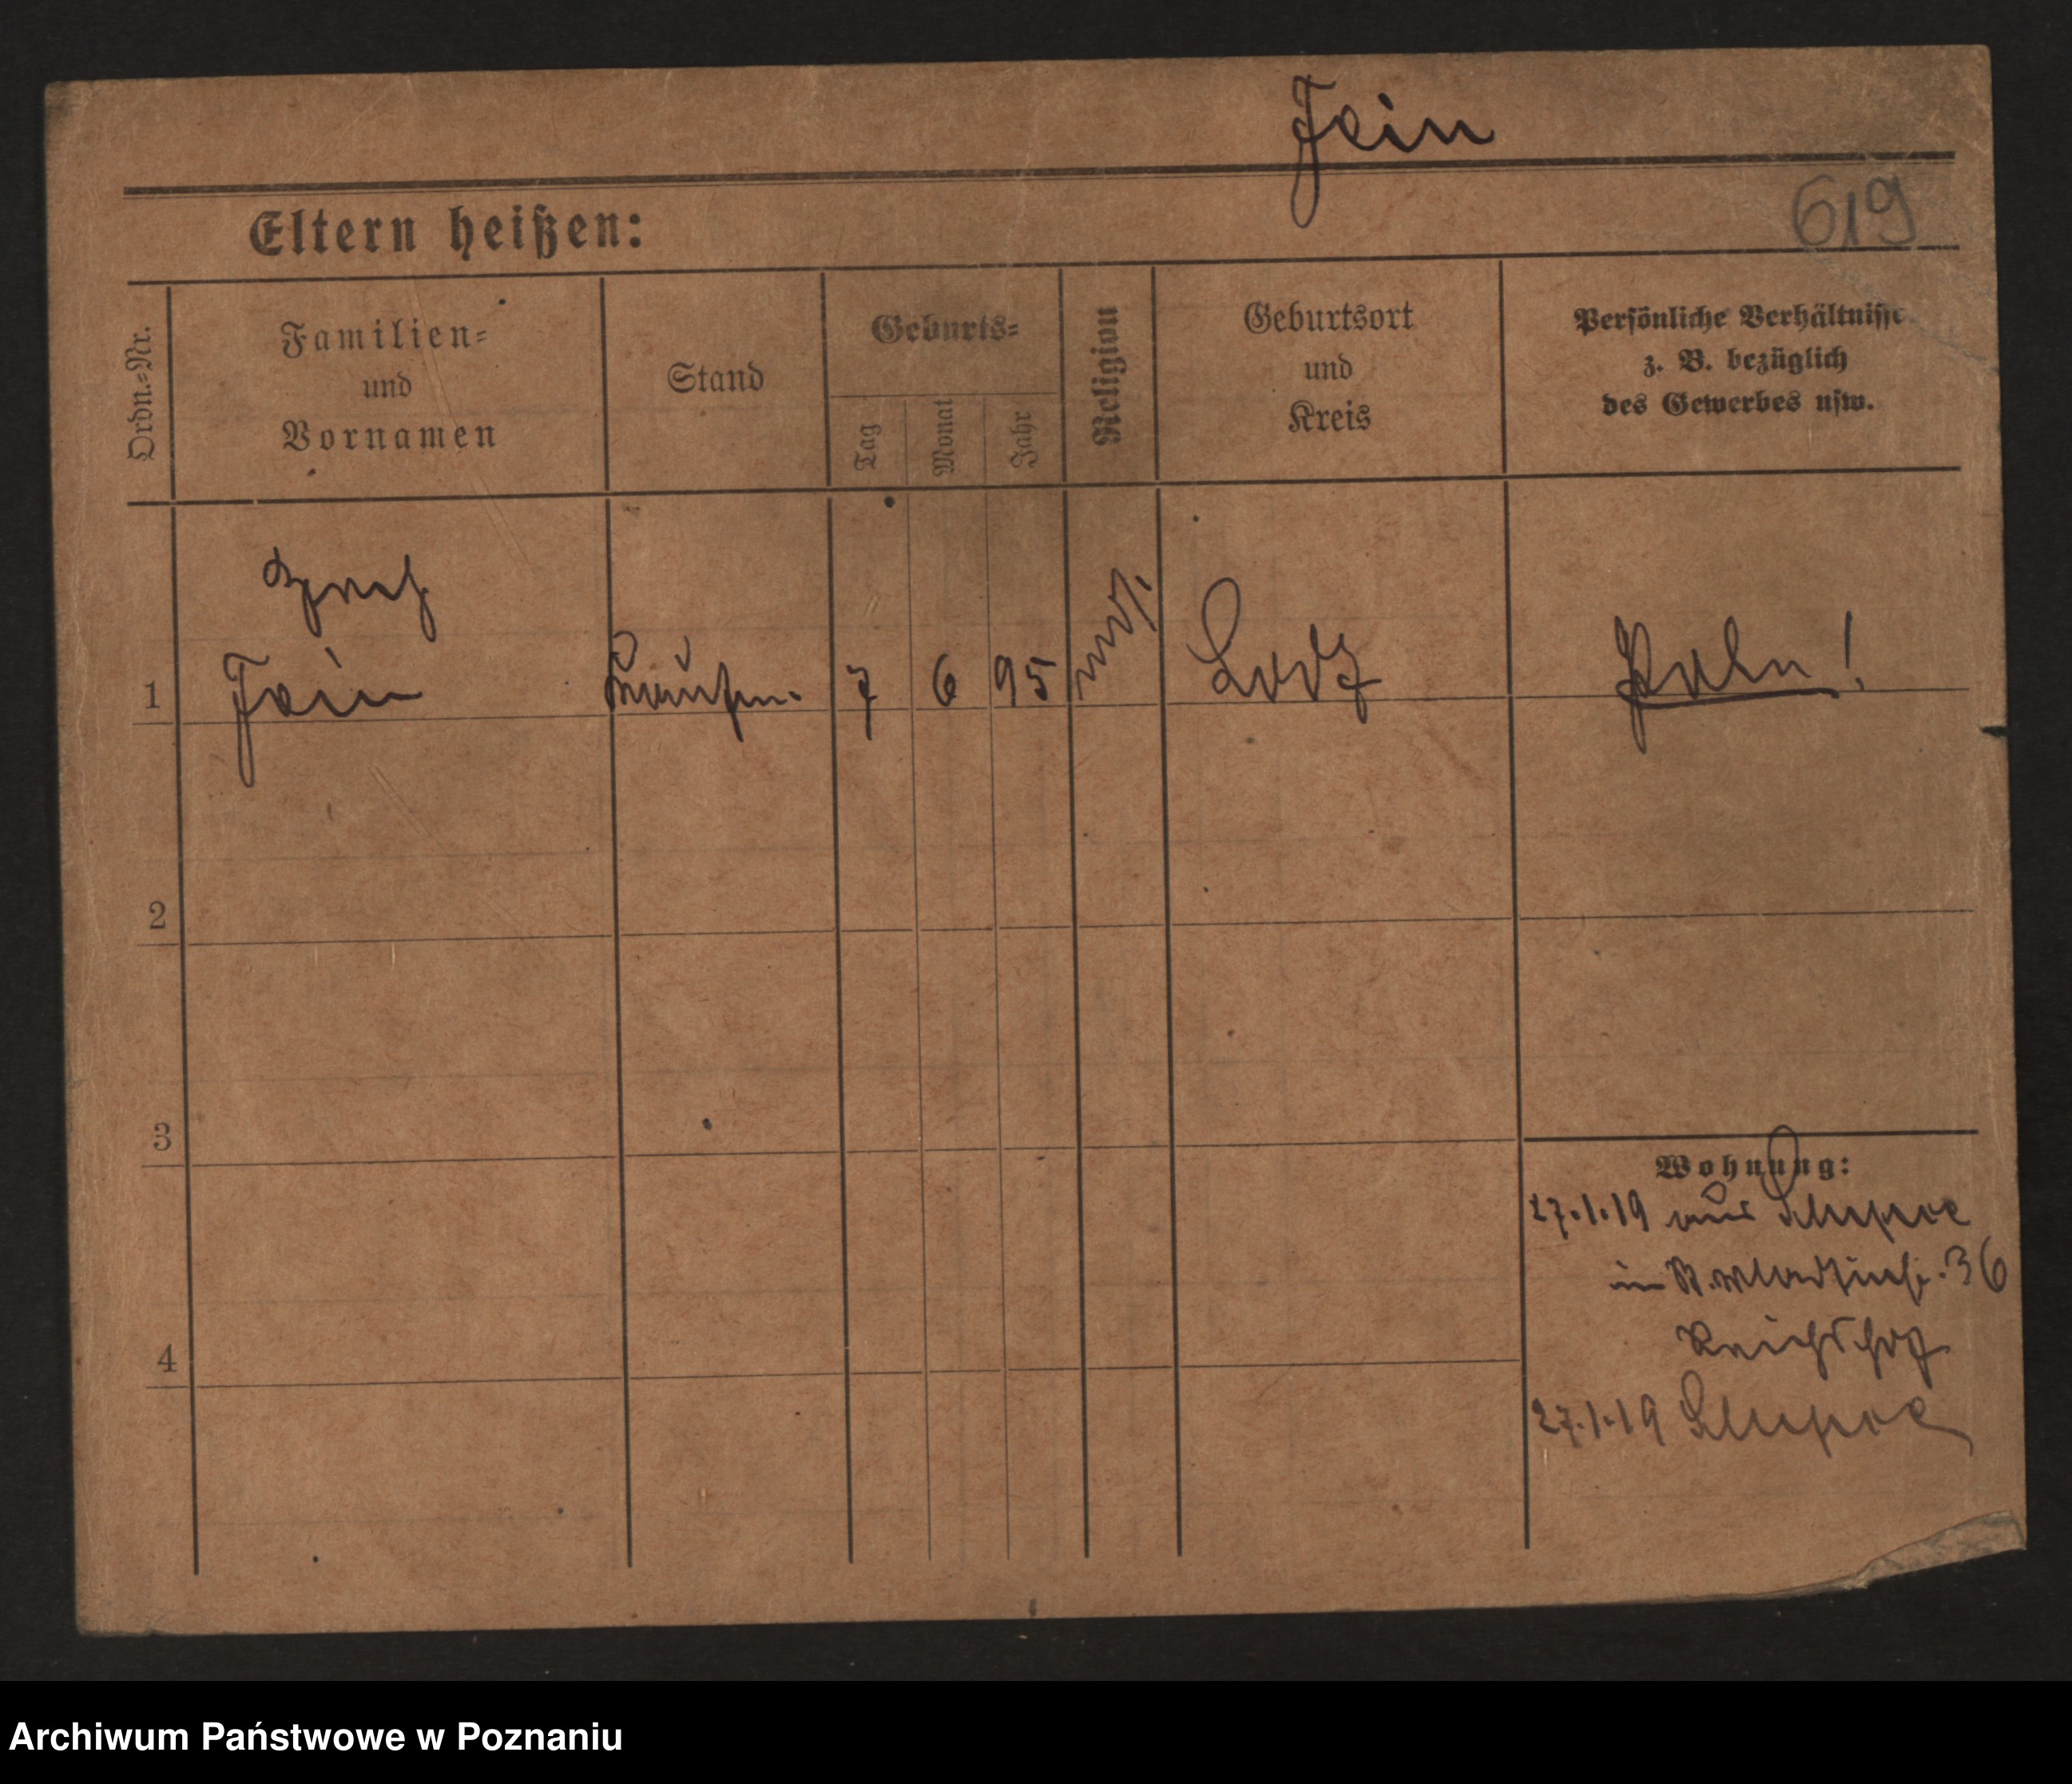 Fein
619
Eltern heißen:
Ordn.-Nr.
Familien-
und
Vornamen
Stand
Geburts-
Tag
Monat
Jahr
Religion
Geburtsort
und
Kreis
Persönliche Verhältnisse
z. B. bezüglich
des Gewerbes usw.
1
Fein
7
6
95
mos.
Lodz
Pole!
2
3
4
Wohnung:
27.1.19 aus Slupce
in St. Martinstr. 36
Reichshof
27.1.19 Slupce
Archiwum Państwowe w Poznaniu